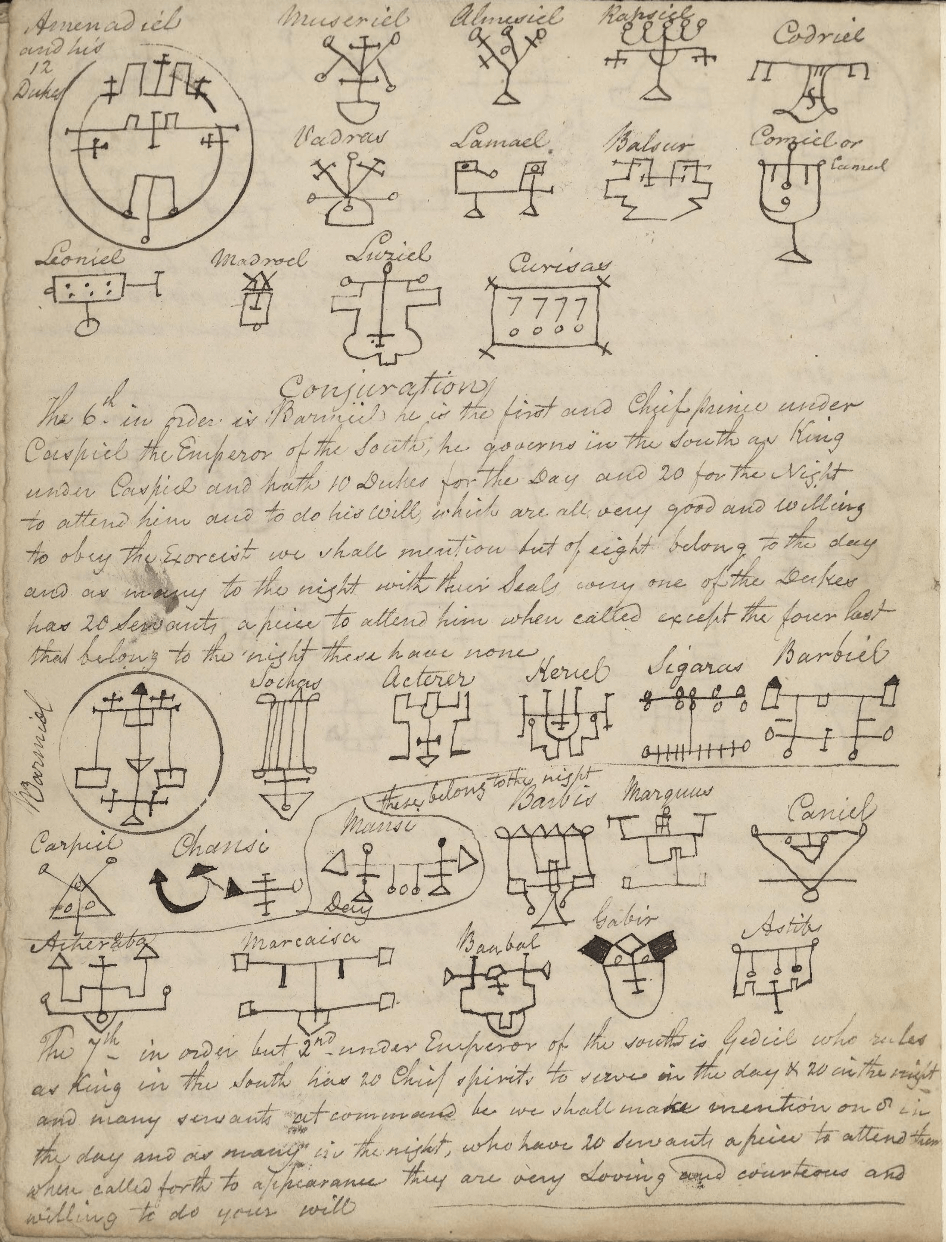 Amenadiel
and his
12
Dukes
Museriel
Almesiel
Rapsiel
Codriel
Vadras
Lamael
Balsur
Comiel or
Camel
Leoniel
Madroel
Luziel
Curisas
7777
Conjuration
The 6th in order is Barmiel he is the first and Chief prince under
Caspiel the Emperor of the South, he governs in the South as King
under Caspiel and hath 10 Dukes for the Day and 20 for the Night
to attend him and to do his will, which are all very good and willing
to obey the Exorcist we shall mention but of eight belong to the day
and as many to the night with their Seals every one of the Dukes
has 20 Servants a piece to attend him when called except the four last
that belong to the night these have none
Barmiel
Sochas
Acterer
Keriel
Sigaras
Barbiel
these belong to the night
Carpiel
Chansi
Mansi
Day
Barbis
Marquus
Caniel
Acheraba
Marcaisa
Baabal
Gabir
Astib
The 7th in order but 2nd under Emperor of the south is Gediel who rules
as King in the South has 20 Chief spirits to serve in the day & 20 in the night
and many servants at command be we shall make mention on 8 in
the day and as many in the night, who have 20 Servants a piece to attend them
when called forth to appearance they are very Loving and courteous and
willing to do your will